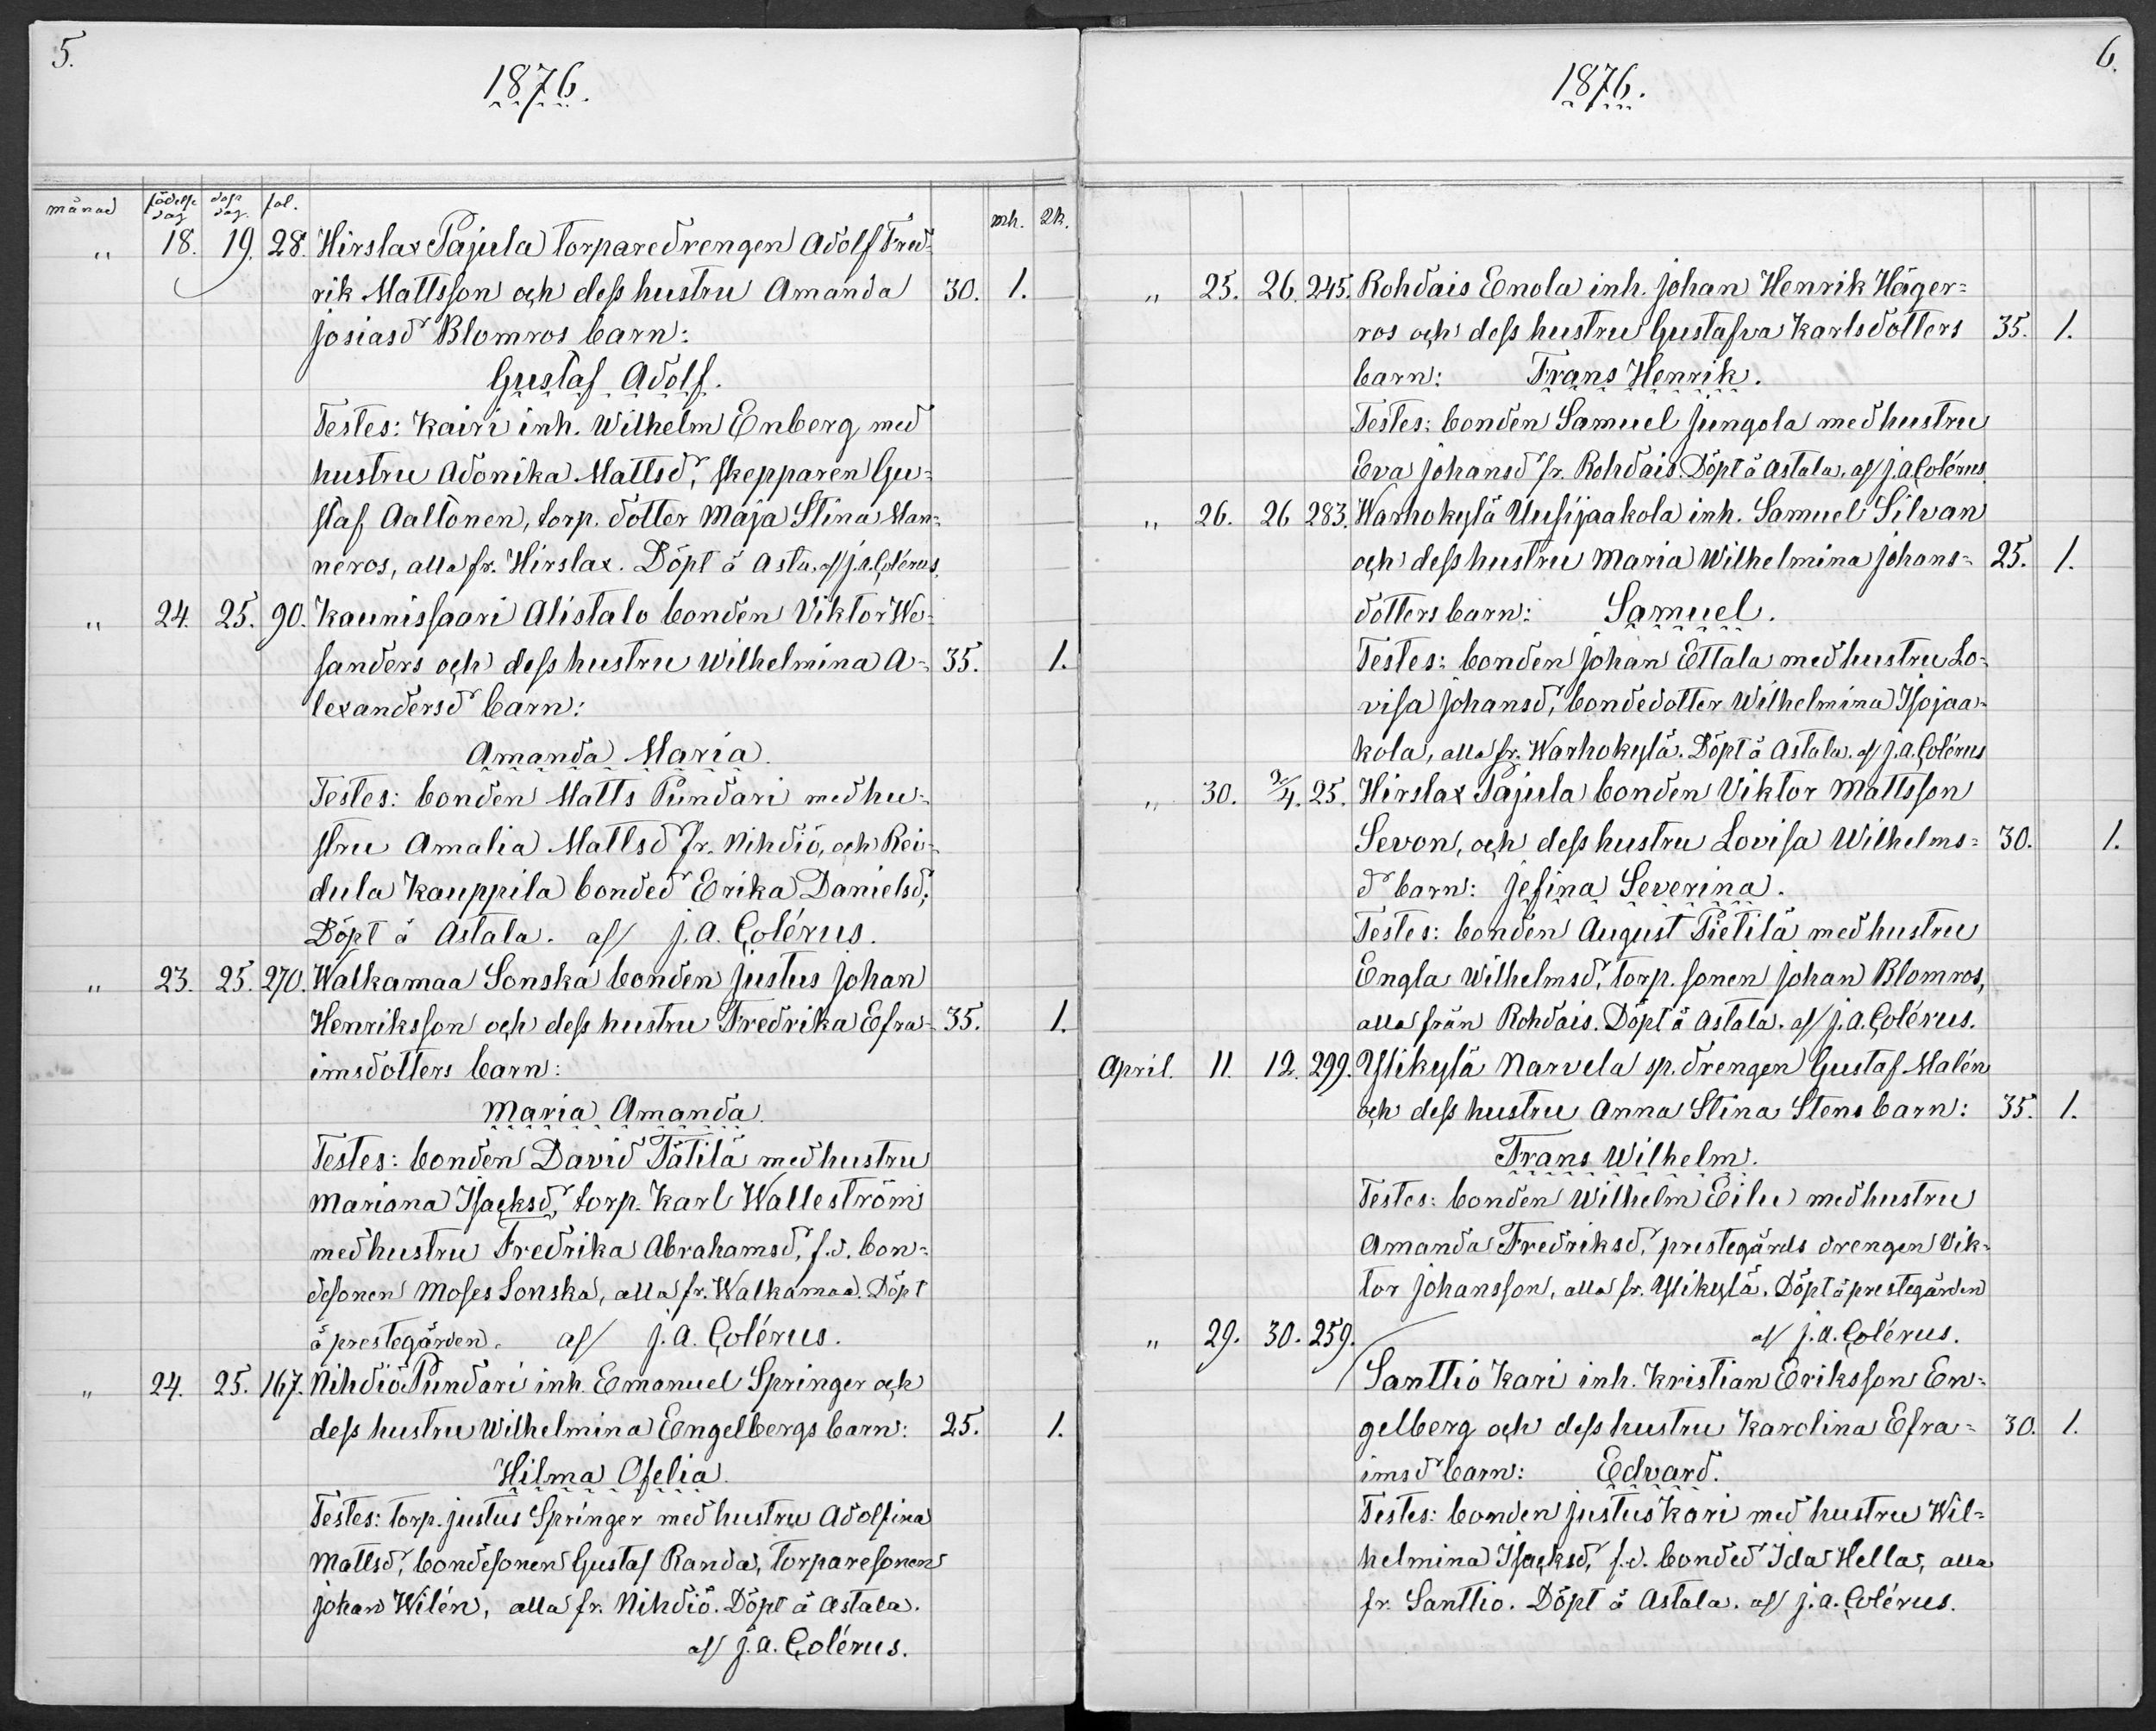 5.
1876.
månad födelse dag dop dag. fol. mk. qk.
" 18. 19. 28. Hirslax Pajula torparedrengen Adolf Fred-
rik Mattsson och dess hustru Amanda 30. 1.
Josiasd Blomros barn:
Gustaf Adolf.
Testes: Kairi inh. Wilhelm Enberg med
hustru Adonika Mattsd, skepparen Gu-
staf Aaltonen, torp. dotter Maja Stina Man-
neros, alla fr. Hirslax. Döpt å Asta. af J. A. Colérus.
" 24. 25. 90. Kaunissaari Alistalo bonden Viktor We-
sanders och dess hustru Wilhelmina A- 35. 1.
lexandersd barn:
Amanda Maria.
Testes: bonden Matts Pundari med hu-
stru Amalia Mattsd fr. Nihdiö, och Rei-
dula Kauppila bonded Erika Danielsd;
Döpt å Astala. af J. A. Colérus.
" 23. 25. 270. Walkamaa Sonska bonden Justus Johan
Henriksson och dess hustru Fredrika Efra- 35. 1.
imsdotters barn:
Maria Amanda.
Testes: bonden David Tätilä med hustru
Mariana Isacksd, torp. Karl Walleström
med hustru Fredrika Abrahamsd, f.d. bon-
desonen Moses Sonska, alla fr. Walkamaa. Döpt
å prestegården. af J. A. Colérus.
" 24. 25. 167. Nihdiö Pundari inh. Emanuel Springer och
dess hustru Wilhelmina Engelbergs barn: 25. 1.
Hilma Ofelia.
Testes: torp. Justus Springer med hustru Adolfina
Mattsd, bondesonen Gustaf Randa, torparesonen
Johan Wilén, alla fr. Nihdiö. Döpt å Astala.
af J. A. Colérus.
6.
1876.
" 25. 26. 245. Rohdais Enola inh. Johan Henrik Häger-
ros och dess hustru Gustafva Karlsdotters 35. 1.
barn: Frans Henrik.
Testes: bonden Samuel Jungola med hustru
Eva Johansd fr. Rohdais. Döpt å Astala. af J. A. Colérus.
" 26. 26 283. Warhokylä Uusijaakola inh. Samuel Silvan
och dess hustru Maria Wilhelmina Johans- 25. 1.
dotters barn: Samuel.
Testes: bonden Johan Ettala med hustru Lo-
visa Johansd, bondedotter Wilhelmina Isojaa-
kola, alla fr. Warhokylä. Döpt å Astala. af J. A. Colérus
" 30. 2/4. 25. Hirslax Pajula bonden Viktor Mattsson
Sevon, och dess hustru Lovisa Wilhelms- 30. 1.
d barn: Jesina Severina.
Testes: bonden August Pietilä med hustru
Engla Wilhelmsd, torp. sonen Johan Blomros,
alla från Rohdais. Döpt å Astala. af J. A. Colérus.
April. 11. 12. 299. Ylikylä Narvela sp. drengen Gustaf Malén
och dess hustru Anna Stina Stens barn: 35. 1.
Frans Wilhelm.
Testes: bonden Wilhelm Eilu med hustru
Amanda Fredriksd, prestegårds drengen Vik-
tor Johansson, alla fr. Ylikylä. Döpt å prestegården
" 29. 30. 259. af J. A. Colérus.
Santtio Kari inh. Kristian Eriksson En-
gelberg och dess hustru Karolina Efra- 30. 1.
imsd barn: Edvard.
Testes: bonden Justus Kari med hustru Wil-
helmina Isacksd, f.d. bonded Ida Hella, alla
fr. Santtio. Döpt å Astala. af J. A. Colérus.